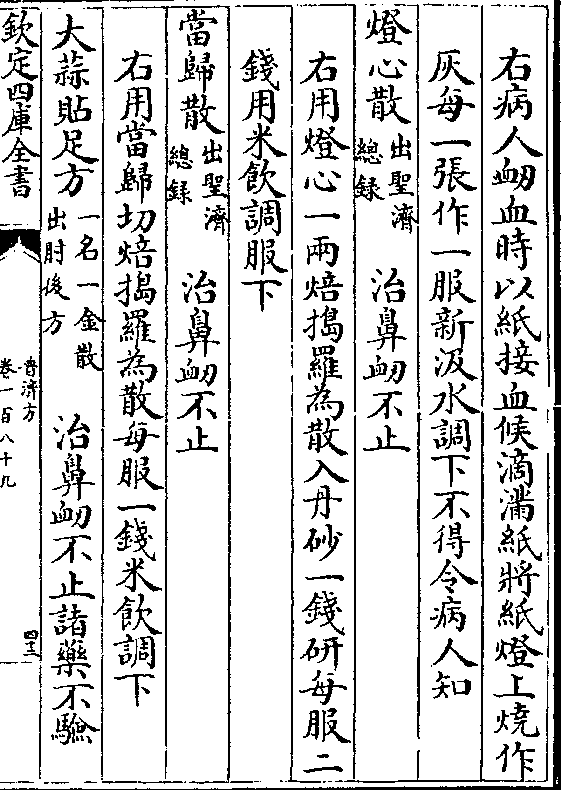 右病人衂血時以紙接血候滴滿紙將紙燈上燒作
灰每一張作一服新汲水調下不得令病人知
燈心散出聖濟總録 治鼻衂不止
右用燈心一兩焙搗羅為散入丹砂一錢研每服二
錢用米飲調服下
當歸散出聖濟總録 治鼻衂不止
右用當歸切焙搗羅為散每服一錢米飲調下
大蒜貼足方一名一金散出肘後方 治鼻衂不止諸藥不驗
欽定四庫全書
普濟方
卷一百八十九
四三